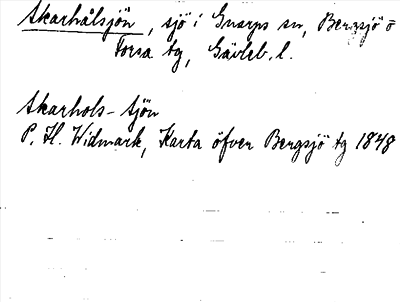 Skarhålsjön, sjö i Gnarps sn, Bergsjö o
Forsa tg, Gävleb. l.
Skarhols-sjön
P. H. Widmark, Karta öfver Bergsjö tg 1848